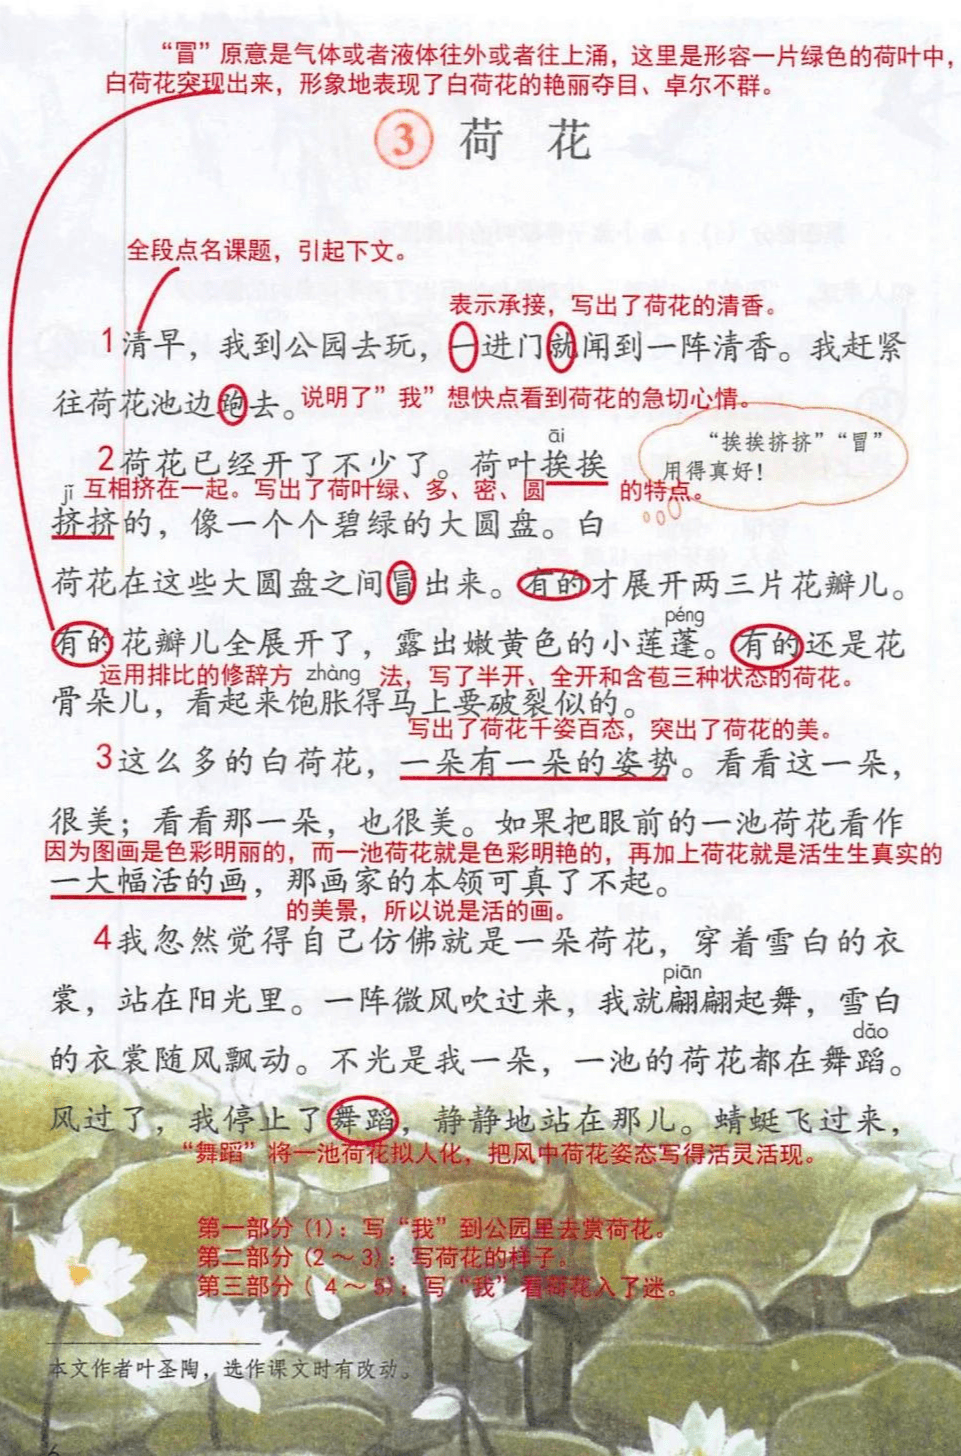 “冒”原意是气体或者液体往外或者往上涌，这里是形容一片绿色的荷叶中，
白荷花突现出来，形象地表现了白荷花的艳丽夺目、卓尔不群。
3 荷 花
全段点名课题，引起下文。
表示承接，写出了荷花的清香。
1清早，我到公园去玩，一进门就闻到一阵清香。我赶紧
往荷花池边跑去。说明了”我”想快点看到荷花的急切心情。
āi
“挨挨挤挤”“冒”
用得真好！
2荷花已经开了不少了。荷叶挨挨
jǐ 互相挤在一起。写出了荷叶绿、多、密、圆 的特点。
挤挤的，像一个个碧绿的大圆盘。白
荷花在这些大圆盘之间冒出来。有的才展开两三片花瓣儿。
péng
有的花瓣儿全展开了，露出嫩黄色的小莲蓬。有的还是花
运用排比的修辞方 zhàng 法，写了半开、全开和含苞三种状态的荷花。
骨朵儿，看起来饱胀得马上要破裂似的。
写出了荷花千姿百态，突出了荷花的美。
3这么多的白荷花，一朵有一朵的姿势。看看这一朵，
很美；看看那一朵，也很美。如果把眼前的一池荷花看作
因为图画是色彩明丽的，而一池荷花就是色彩明艳的，再加上荷花就是活生生真实的
一大幅活的画，那画家的本领可真了不起。
的美景，所以说是活的画。
4我忽然觉得自己仿佛就是一朵荷花，穿着雪白的衣
piān
裳，站在阳光里。一阵微风吹过来，我就翩翩起舞，雪白
dǎo
的衣裳随风飘动。不光是我一朵，一池的荷花都在舞蹈。
风过了，我停止了舞蹈，静静地站在那儿。蜻蜓飞过来，
“舞蹈”将一池荷花拟人化，把风中荷花姿态写得活灵活现。
第一部分（1）：写“我”到公园里去赏荷花。
第二部分（2～3）：写荷花的样子。
第三部分（4～5）：写“我”看荷花入了迷。
本文作者叶圣陶，选作课文时有改动。
6